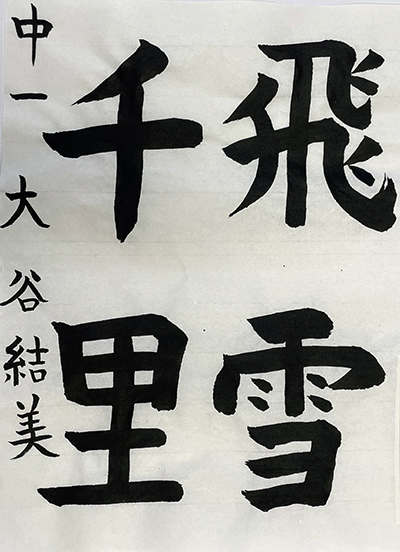 飛雪
千里
中一 大谷結美